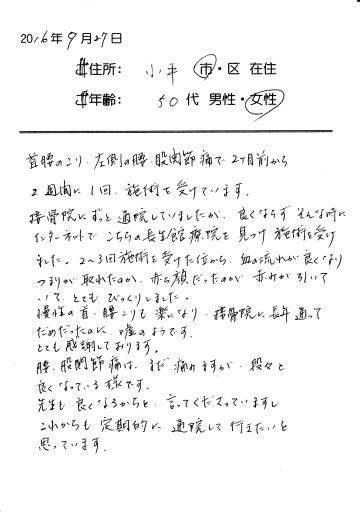 2016年9月27日
住所： 小平 市・区 在住
年齢： 50代 男性・女性
首腰のこり、左側の腰、股関節痛で2ヶ月前から
2週間に1回、施術を受けています。
接骨院にずっと通院していましたが、良くならず そんな時に
インターネットで こちらの長生館療院を見つけ 施術を受け
ました。2〜3回施術を受けた位から、血の流れが良くなり
つまりが取れたのか、赤ら顔だったのが 赤みが引いて
いて、とても びっくりしました。
慢性の首、腰こりも 楽になり、接骨院に長年 通って
だめだったのに、嘘のようです。
とても感謝しております。
腰、股関節痛は、まだ痛みますが、段々と
良くなっている様です。
先生も 良くなるからと、言ってくださっていますし
これからも 定期的に 通院して 行きたいと
思っています。